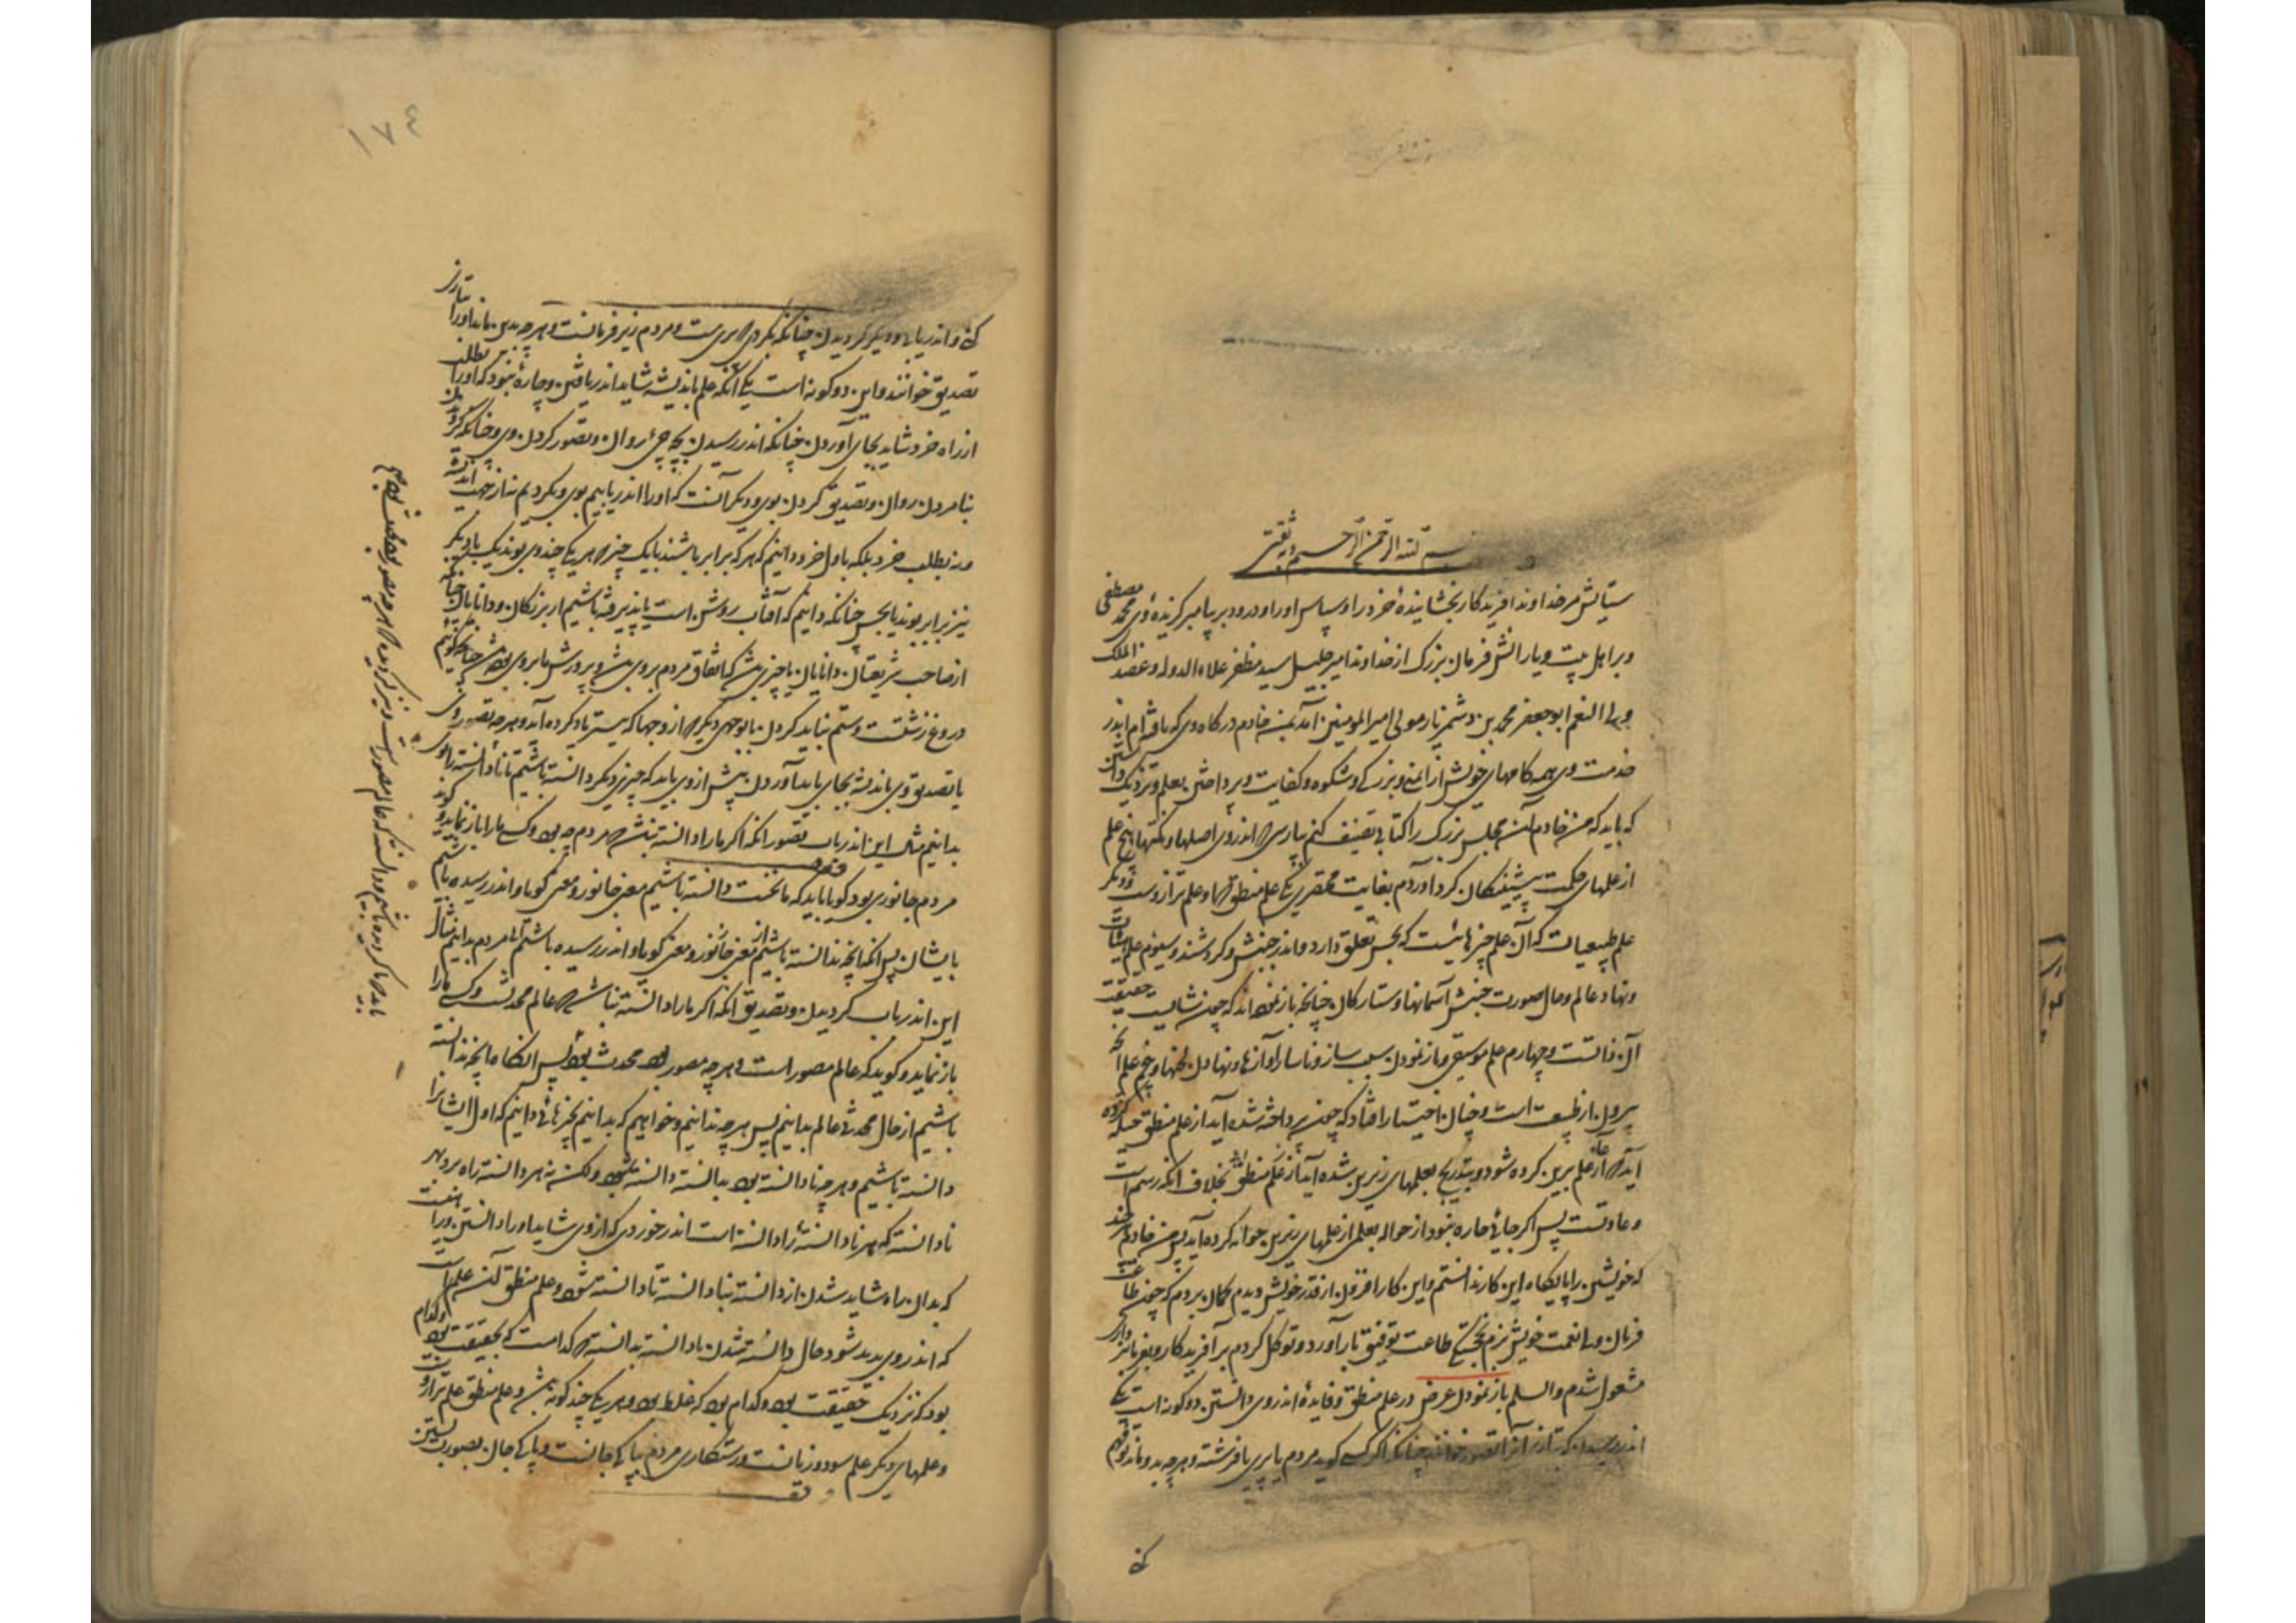 بسم الله الرحمن الرحیم وبه ثقتی
ستایش مر خداوند افریدکار بخشاینده خرد را و سپاس او را و درود بر پیامبر کزیده وی محمد مصطفی
و بر اهل بیت و یارانش فرمان بزرک از خداوند امیر جلیل سید مظفر علاء الدوله و عضد الملک
ابو جعفر محمد بن دشمنزیار مولی امیر المومنین آمد بمن خادم درکاه وی که یافته‌ام اندر
خدمت وی همه کامهای خویش از ایمنی و بزرکی و شکوه و کفایت و پرداختن بعلم و نزدیک داشتن
که باید که من خادم آن مجلس بزرک را کتابی تصنیف کنم بپارسی اندر وی اصلها و نکتها پنج علم
از علمهای حکمت پیشینکان کرد آوردم بغایت مختصری یکی علم منطق و او علم ترازوست و دیکر
علم طبیعیات که آن علم چیزهائیست که بحس تعلق دارد و اندر جنبش و کردشند و سیوم علم هیئات
و نهاد عالم و حال صورت جنبش آسمانها و ستارکان چنانکه باز نموده‌اند که چون شایست حقیقت
آن دانست و چهارم علم موسیقی و باز نمودن سبب ساز و ناساز آوازها و نهادن لحنها و پنجم علم آنچه
بیرون از طبیعت است و چنان اختیار افتاد که چون پرداخته شده آید از علم منطق حیله کرده
آید که آغاز از علم برین کرده شود و بتدریج بعلمهای زیرین شده آید بخلاف آنکه رسم است
و عادتست پس اکر جائی چاره نبود از حواله بعلمی از علمهای زیرین حواله کرده آید پس من خادم هر چند
که خویشتن را پایکاه این کار ندانستم و این کار افزون از قدر خویش دیدم کمان بردم که چون طاعت
فرمان ولی نعمت خویش برم بخجستکی طاعت توفیق بار آورد و توکل کردم بر آفریدکار و بفرمانبرداری
مشغول شدم والسلم باز نمودن غرض در علم منطق و فایده اندر وی دانستن دو کونه است یکی
اندر رسیدن که بتازی آنرا تصور خوانند چنانکه اکر کسی کوید مردم یا پری یا فرشته و هرچه بدو ماند تو فهم
کنی
۱۷۴
کنی و اندر یابی و دیکر کرویدن چنانکه بکروی که پری هست و مردم زیر فرمانست و هرچه بدین ماند او را بتازی
تصدیق خوانند و این دو کونه است یکی آنکه علم باندیشه شاید اندر یافتن و چاره نبود که او را بطلب
از راه خرد شاید بجای آوردن چنانکه اندر رسیدن بچه چیزی روان و تصور کردن وی و چنانکه کرویدن
بنامردن روان و تصدیق کردن بوی و دیکر آنست که او را اندر یابیم بوی و بکرویم نه از جهت اندیشه
و نه بطلب خرد بلکه باول خرد دانیم که هرکه برابر باشند با یک چیز که هر یکی چند وی بوند یک با دیکر
نیز برابر بوند یا بحس چنانکه دانیم که آفتاب روشن است یا پذیرفته باشیم از بزرکان و دانایان چنانکه
از صاحب شریعتان و دانایان یا چیزی باشد که اتفاق مردم بر وی باشد و پرورش ما بر وی بود چنانکه کوئیم
دروغ زشتست و ستم نباید کردن یا بوجهی دیکر از وجها که سپس‌تر یاد کرده آید و هرچه تصور وی
یا تصدیق وی باندیشه بجای باید آوردن پیش از وی باید که چیزی دیکر دانسته باشیم تا نادانسته را بوی
بدانیم مثال این اندر باب تصور آنکه اکر ما را دانسته نباشد که مردم چه بود و کسی ما را باز نماید و کوید
مردم جانوری بود کویا باید که ما نخست دانسته باشیم معنی جانور و معنی کویا و اندر رسیده باشیم
بایشان پس آنکه آنچه ندانسته باشیم از معنی مردم بدانیم مثال
این اندر باب کرویدن و تصدیق آنکه اکر ما را دانسته نباشد که عالم محدثست و کسی ما را
باز نماید و کوید که عالم مصور است و هرچه مصور بود محدث بود پس آنکاه ما آنچه ندانسته
باشیم از حال محدثی عالم بدانیم پس هرچه ندانیم و خواهیم که بدانیم بچیزهائی دانیم که اول ایشان را
دانسته باشیم و هرچه نادانسته بود بدانسته دانسته شود و لکن نه هر دانسته راه برد بهر
نادانسته که هر نادانسته را دانسته است اندر خورد وی که از وی شاید او را دانستن و راهیست
که بدان راه شاید شدن از دانسته بنادانسته تا دانسته شود و علم منطق آن علم است
که اندر وی پدید شود حال دانسته شدن نادانسته بدانسته که کدامست که بحقیقت بود و کدام
بود که نزدیک حقیقت بود و کدام بود که غلط بود و هر یکی چند کونه باشد و علم منطق علم ترازوست
و علمهای دیکر علم سود و زیانست و رستکاری مردم بپاکی جانست و پاکی جان بصورت بستن
باید که ما کرویده باشیم و دانسته که عالم مصورست و نیز کرویده که هرچه مصور بود محدث بود